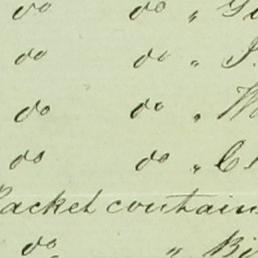 do do "
do do "
do do "
do do "
Packet contain
do " Bi